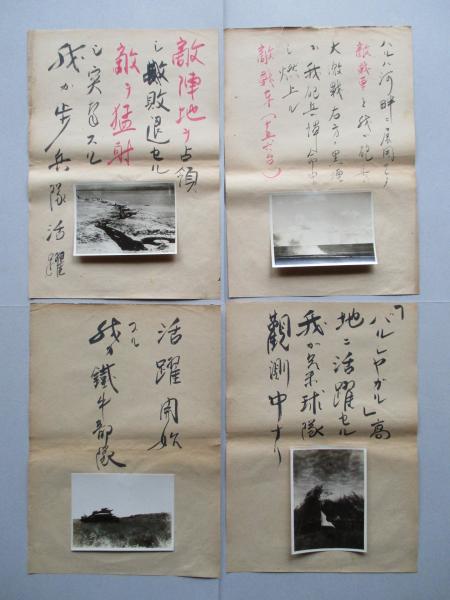 ハルハ河畔ニ展開セシ
敵戦車と我が砲兵
大激戦右方ノ黒煙
我砲兵弾命中
シ燃上ル
敵戦車(十五六台)
敵陣地ヲ占領
シ敗退セル
敵ヲ猛射
シ突進スル
我が歩兵隊活躍
「バルシャガル」高
地ニ活躍セル
我が気球隊
觀測中ナリ
活躍開始
スル
我が鐵牛部隊